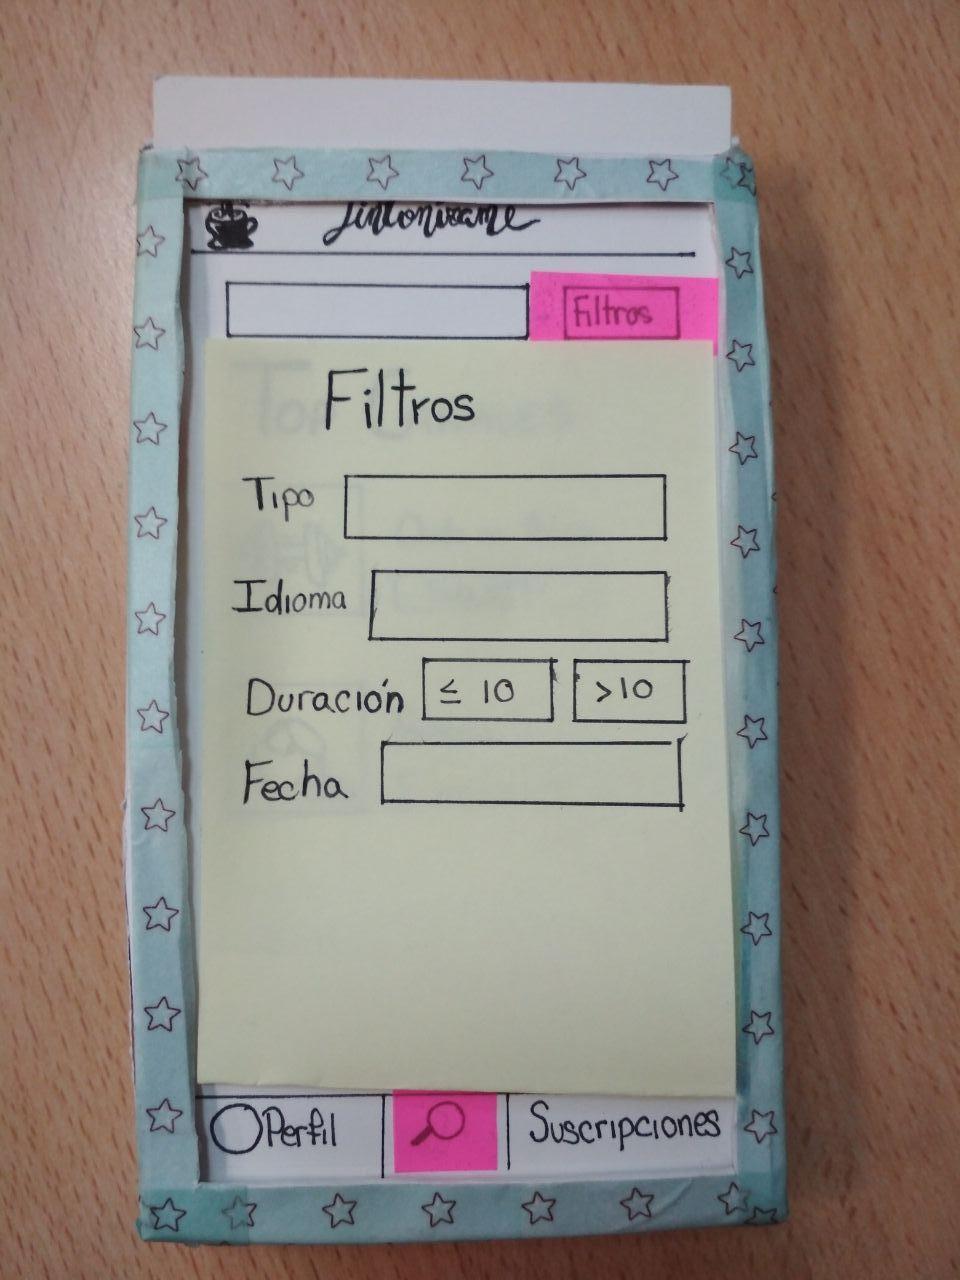 Sintonízame
Filtros
Filtros
Tipo
Idioma
Duración ≤ 10 >10
Fecha
Perfil Suscripciones